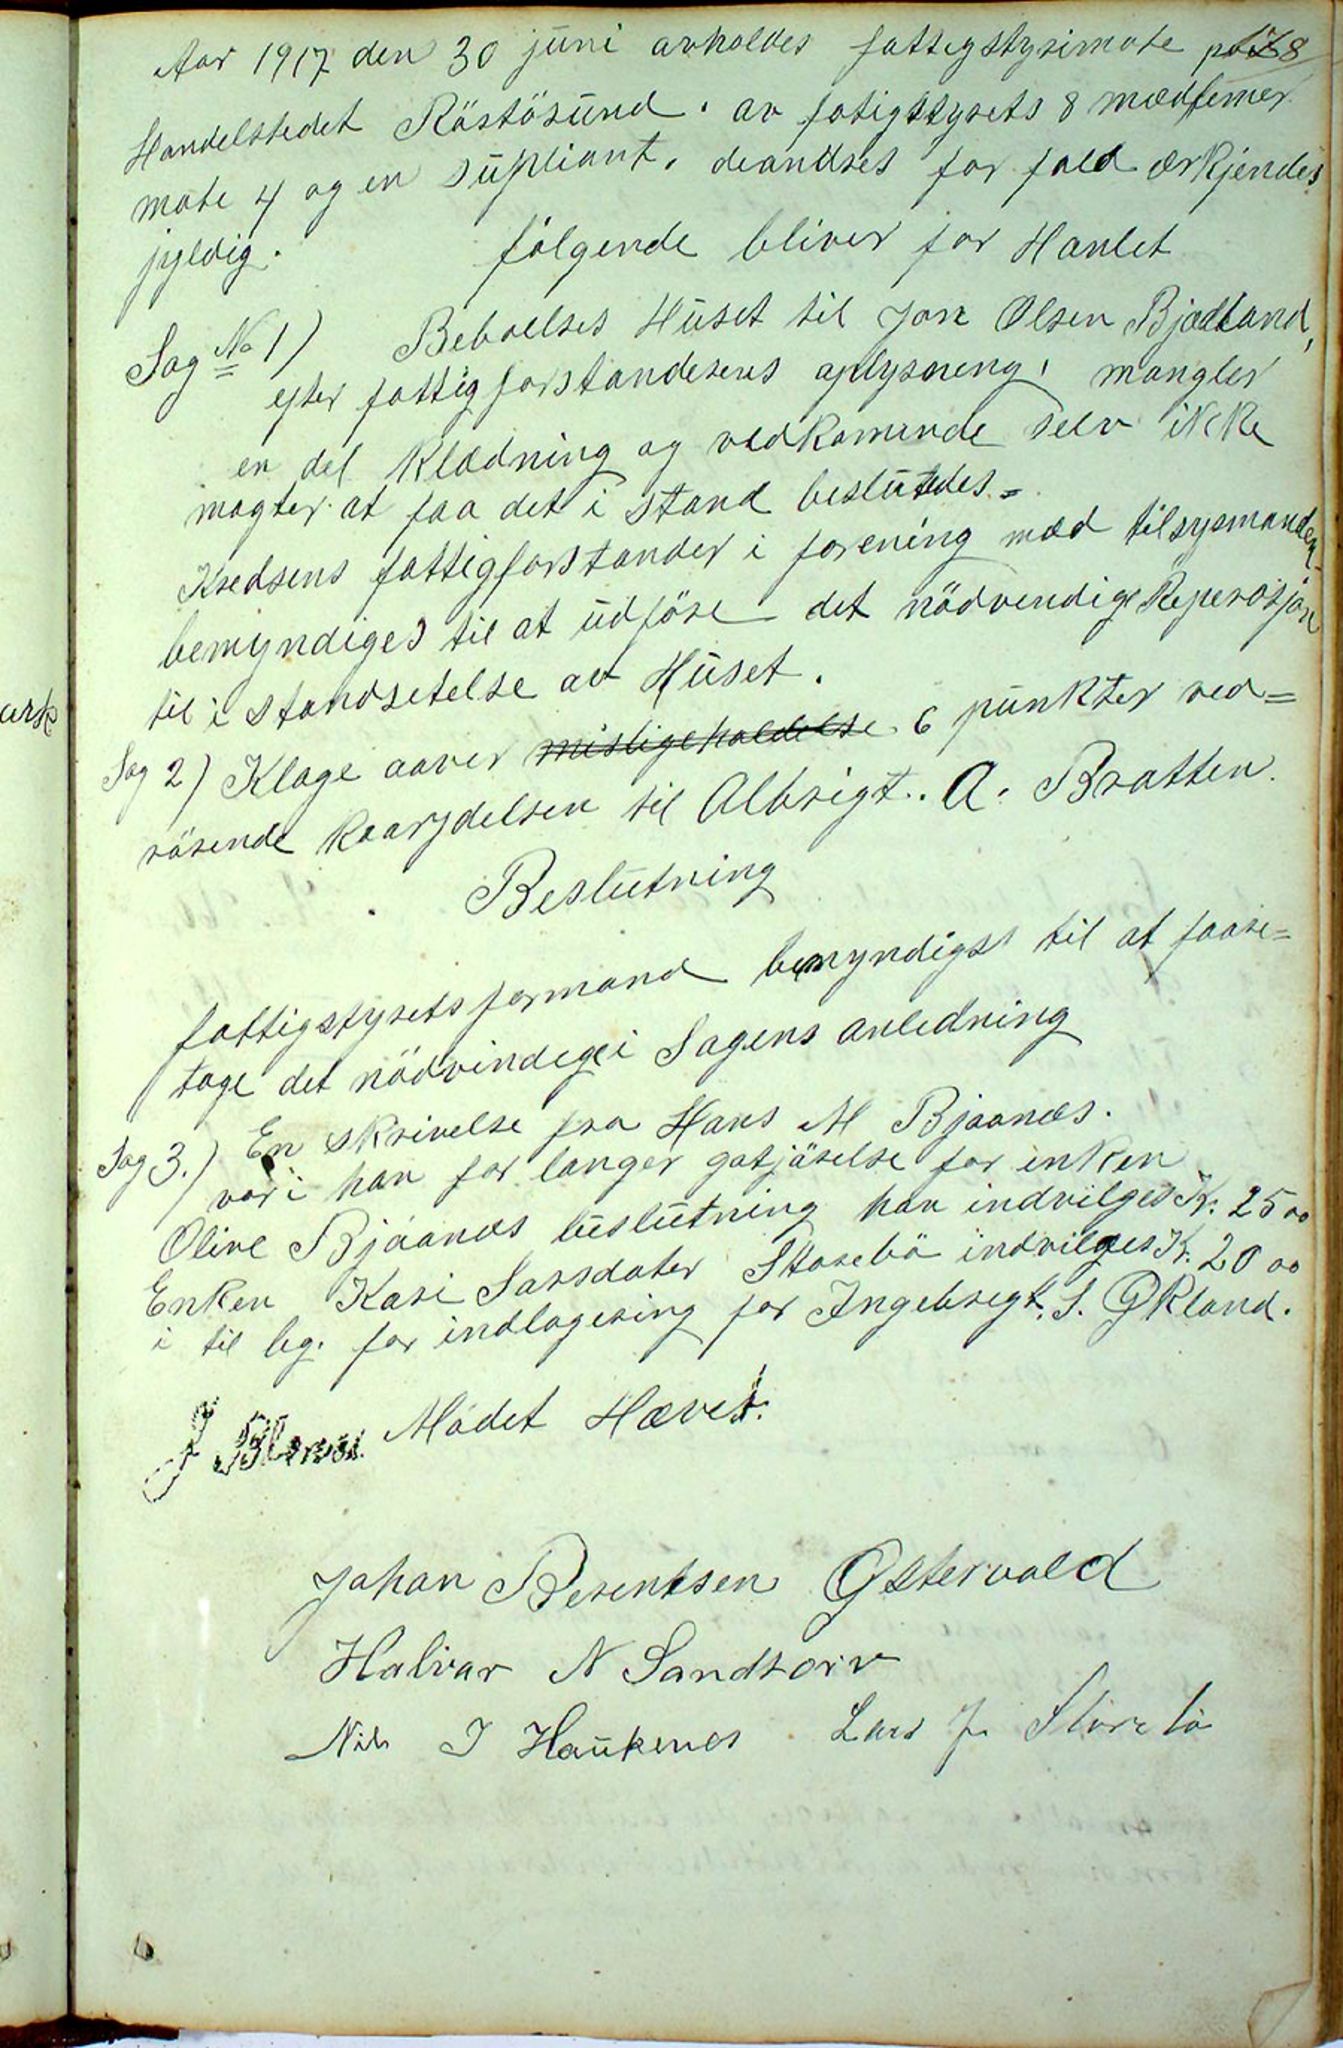 Aar 1917 den 30 juni avholdes fattigstyrimøte på
Handelstedet Röstösund. av fatigstyrets 8 medlemer
møte 4 og en supliant. deandres for fald ærkjendes
jyldig. fölgende bliver for Hanlet
Sag No 1) Beboelses Huset til Jon Olsen Bjelland,
efter fattigforstanderens oplysneng, mangler
en del Klædning og vedkomende selv ikke
magter at faa det i stand beslutedes =
Kredsens fattigforstander i forening med tilsysmanden
bemyndiges til at udföre det nödvendige Reperasjon
til i standsetelse av Huset.
Sag 2) Klage aaver misligeholdelse 6 punkter ved=
rörende kaarydelsen til Albrigt. A. Bratten.
Beslutning
fattigstyretsformand bemyndigst til at faare=
tage det nödvindige i Sagens anledning
Sag 3.) En skrivelse fra Hans M Bjaanes.
vor i han for langer gotjörelse for enken
Olive Bjaanes beslutning han indvilges Kr. 25 00
Enken Kari Larsdater Storebö indvilges Kr. 20 00
i til leg. for indlogering for Ingebregt. S. Økland.
Mödet Hævet.
J
Johan Berentsen Østervold
Halvar N Sandtorv
Nils J Haukenes Lars J. Storebö